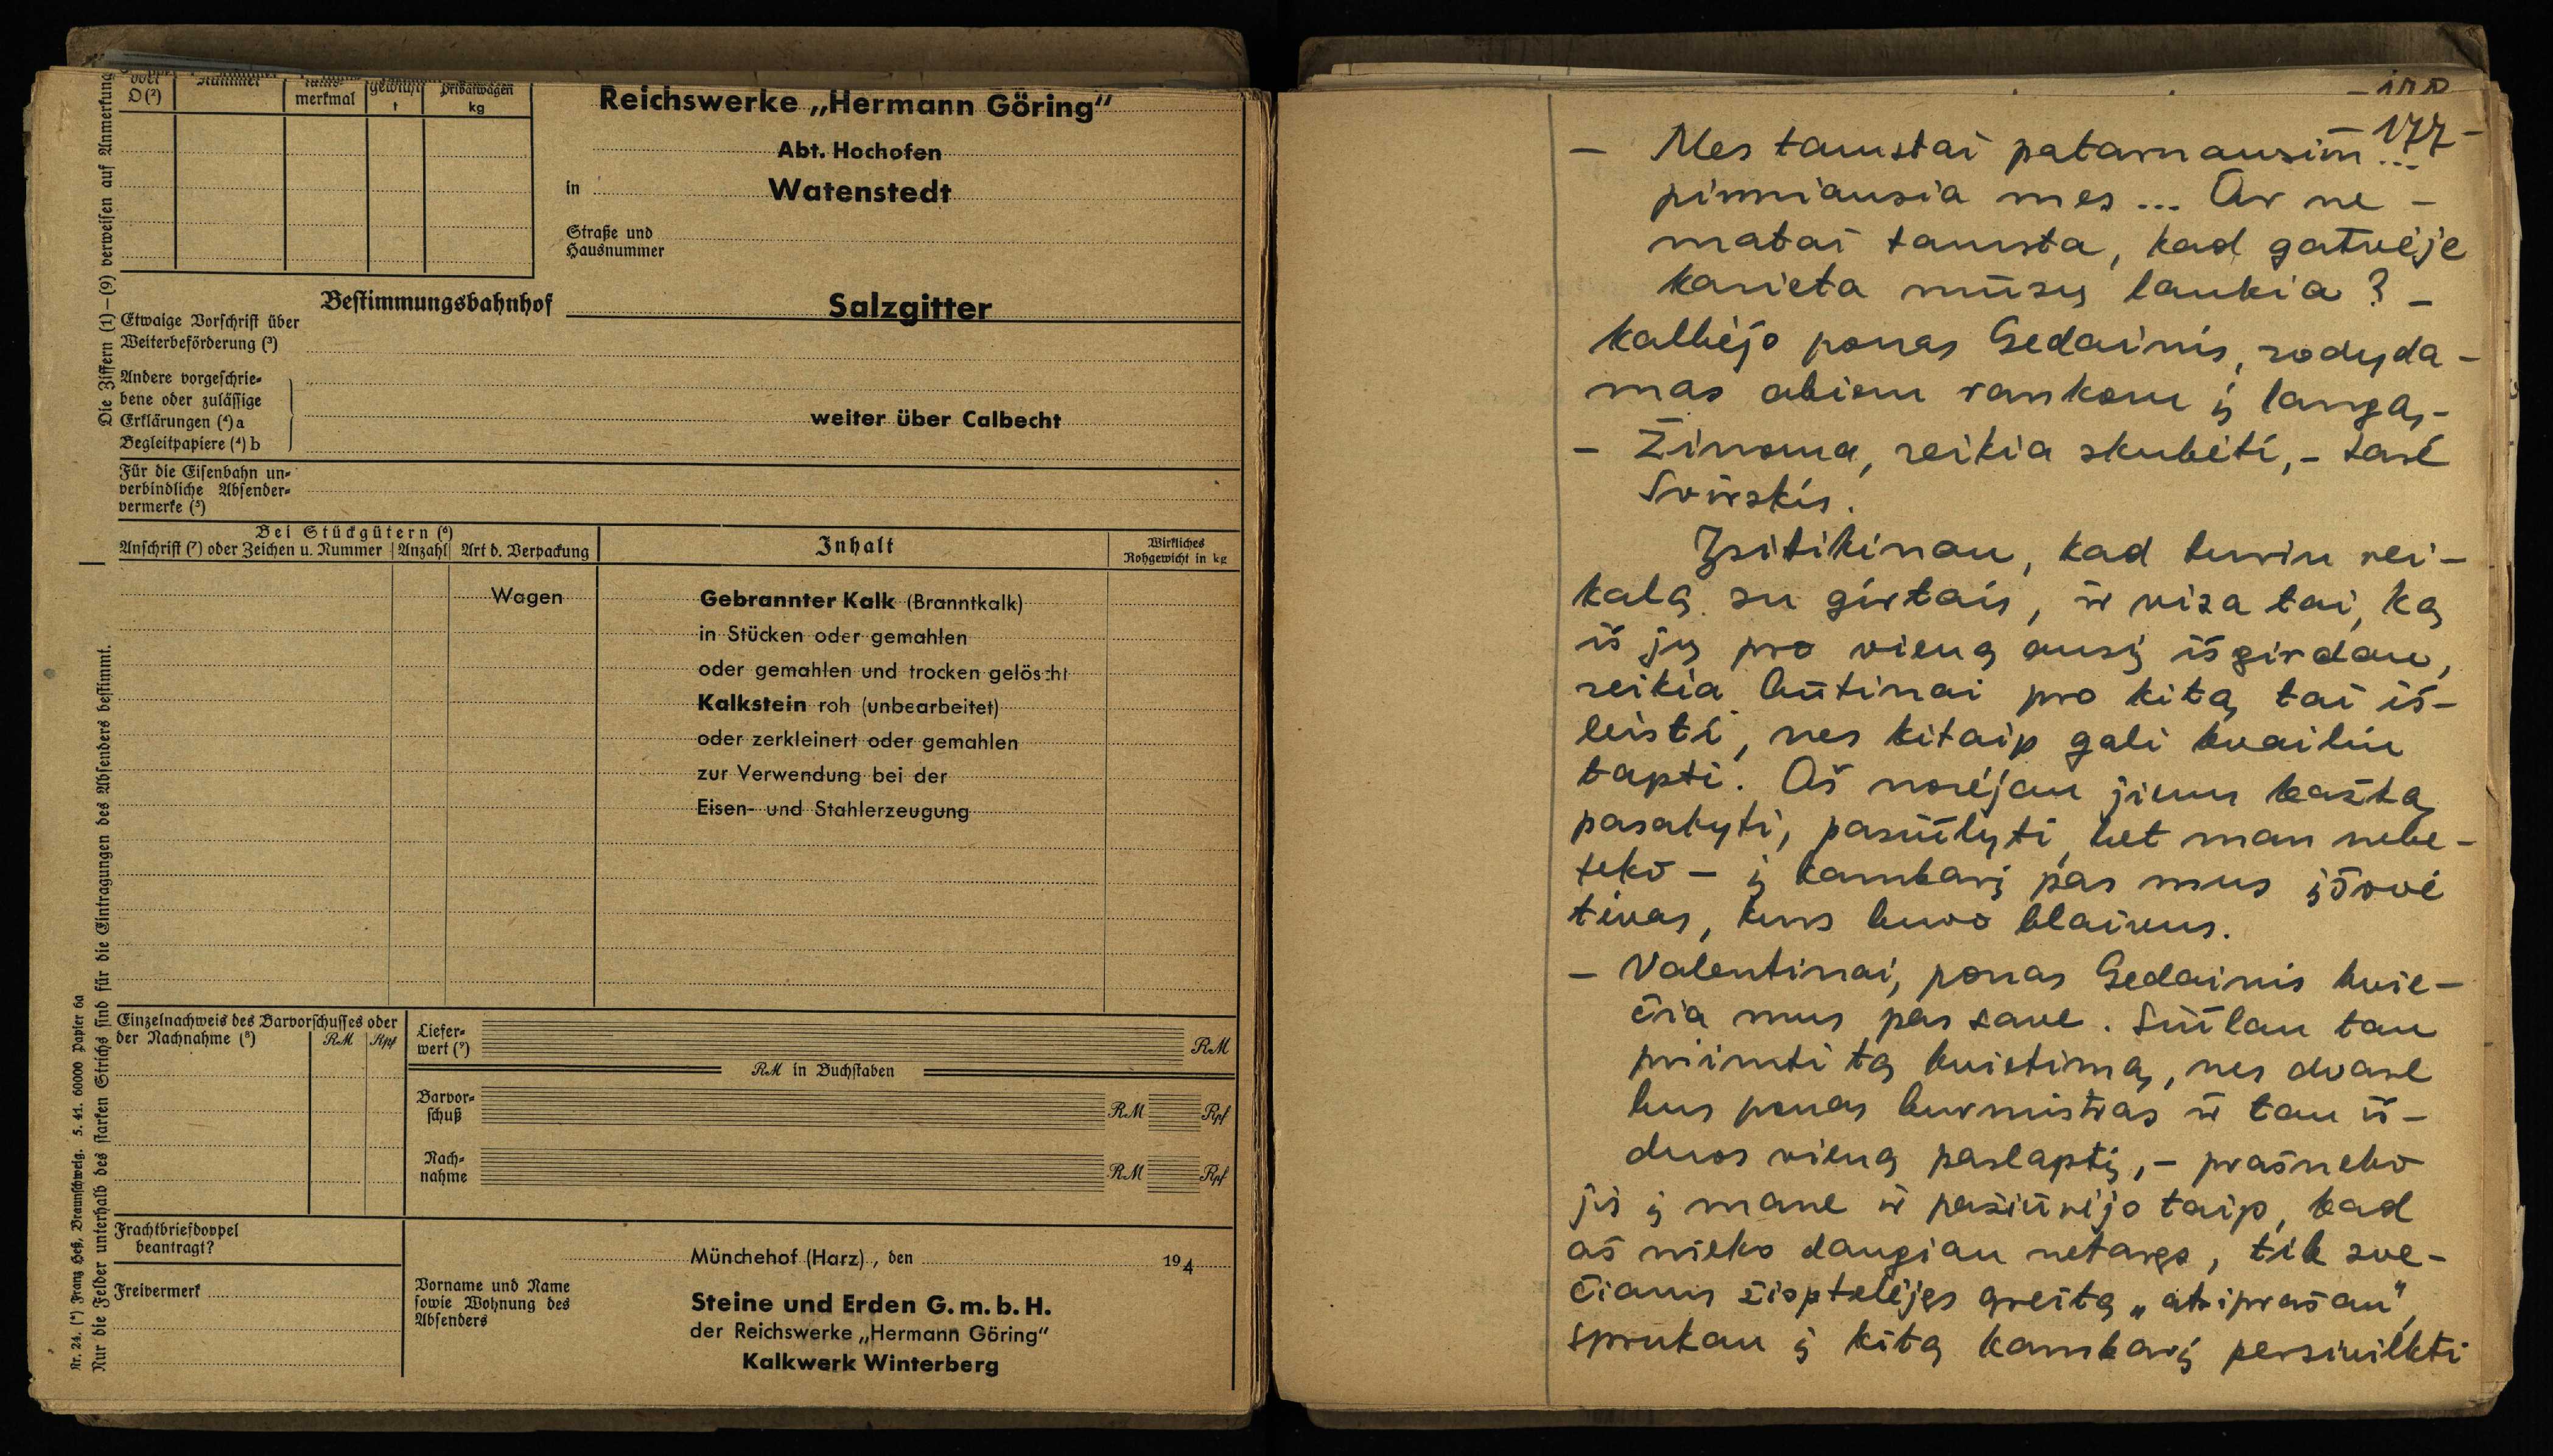 voll
D (²)
Nummer
merkmal
t
Privatwagen
kg
Reichswerke „Hermann Göring“
Abt. Hochofen
in Watenstedt
Straße und
Hausnummer
Bestimmungsbahnhof Salzgitter
Etwaige Vorschrift über
Weiterbeförderung (³)
Andere vorgeschrie-
bene oder zulässige
Erklärungen (⁴) a
Begleitpapiere (⁴) b
weiter über Calbecht
Für die Eisenbahn un-
verbindliche Absender-
vermerke (⁵)
Bei Stückgütern (⁶)
Anschrift (⁷) oder Zeichen u. Nummer Anzahl Art d. Verpackung
Inhalt
Wirkliches
Rohgewicht in kg
Wagen
Gebrannter Kalk (Branntkalk)
in Stücken oder gemahlen
oder gemahlen und trocken gelöscht
Kalkstein roh (unbearbeitet)
oder zerkleinert oder gemahlen
zur Verwendung bei der
Eisen- und Stahlerzeugung
Einzelnachweis des Barvorschusses oder
der Nachnahme (⁸) RM Rpf
Liefer-
wert (⁹) RM
RM in Buchstaben
Barvor-
schuß RM Rpf
Nach-
nahme RM Rpf
Frachtbriefdoppel
beantragt?
Freivermerk
Münchehof (Harz), den 194
Vorname und Name
sowie Wohnung des
Absenders
Steine und Erden G. m. b. H.
der Reichswerke „Hermann Göring“
Kalkwerk Winterberg
Die Ziffern (1)–(9) verweisen auf Anmerkung
Nur die Felder unterhalb des starken Strichs sind für die Eintragungen des Absenders bestimmt.
Nr. 24. (*) Franz Heß, Braunschweig. 5. 41. 60000 Papier 6a
- 177 -
– Mes tamstai patarnausim...
pirmiausia mes... Ar ne-
matai tamsta, kad gatvėje
karieta mūsų laukia? –
kalbėjo ponas Gedainis, rodyda-
mas abiem rankom į langą,-
– Žinoma, reikia skubėti,- tarė
Svirskis.
Įsitikinau, kad turiu rei-
kalą su girtais, ir visa tai, ką
iš jų pro vieną ausį išgirdau,
reikia būtinai pro kitą tai iš-
leisti, nes kitaip gali kvailiu
tapti. Aš norėjau jiem kažką
pasakyti, pasiūlyti, bet man nebe-
teko – į kambarį pas mus įėjo
tėvas, kurs buvo blaivus.
– Valentinai, ponas Gedainis kvie-
čia mus pas save. Siūlau tau
priimti tą kvietimą, nes dvare
bus ponas burmistras ir tau iš-
duos vieną paslaptį,- prašneko
jis į mane ir pažiūrėjo taip, kad
aš nieko daugiau netaręs, tik sve-
čiams žioptelėjęs greitą „atsiprašau“,
sprukau į kitą kambarį persivilkti